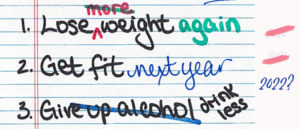 1. Lose more weight again
2. Get fit next year
2022?
3. Give up alcohol drink less